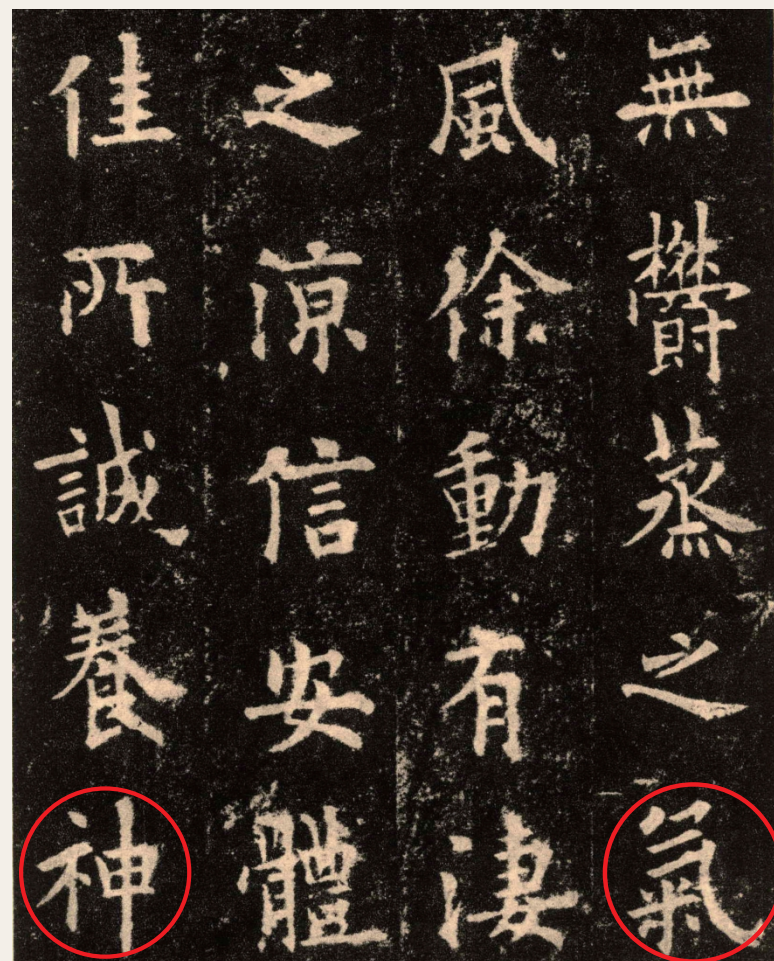 無欝蒸之氣
風徐動有淒
之涼信安體
佳所誠養神